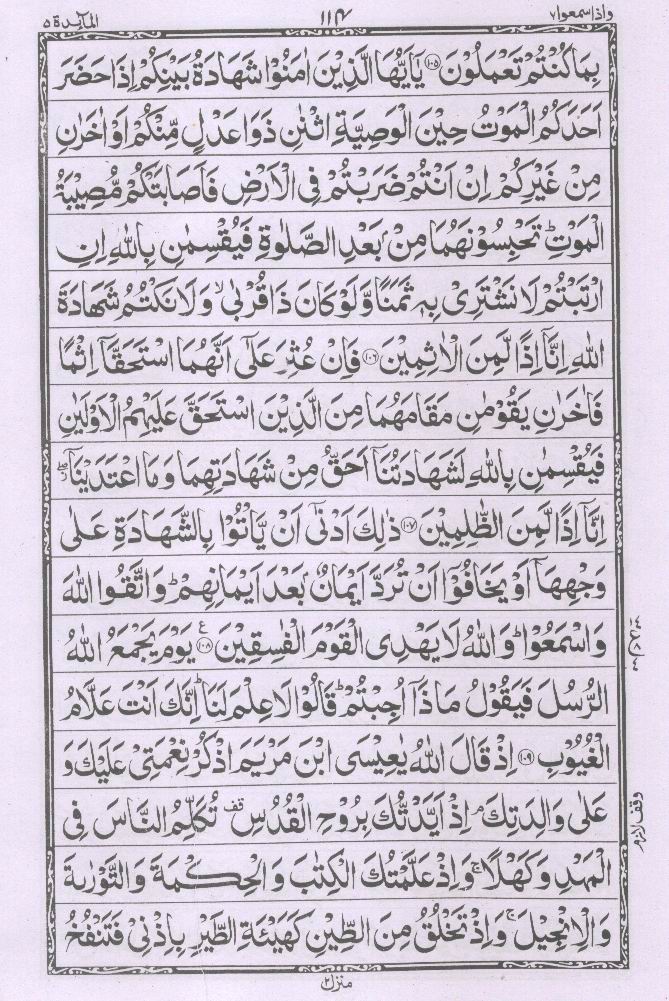 واذاسمعوا۷ ۱۱۴ المآئدة۵
بِمَا كُنْتُمْ تَعْمَلُوْنَ ﴿۱۰۵﴾ يٰۤاَيُّهَا الَّذِيْنَ اٰمَنُوْا شَهَادَةُ بَيْنِكُمْ اِذَا حَضَرَ
اَحَدَكُمُ الْمَوْتُ حِيْنَ الْوَصِيَّةِ اثْنٰنِ ذَوَا عَدْلٍ مِّنْكُمْ اَوْ اٰخَرٰنِ
مِنْ غَيْرِكُمْ اِنْ اَنْتُمْ ضَرَبْتُمْ فِى الْاَرْضِ فَاَصَابَتْكُمْ مُّصِيْبَةُ
الْمَوْتِ ؕ تَحْبِسُوْنَهُمَا مِنْۢ بَعْدِ الصَّلٰوةِ فَيُقْسِمٰنِ بِاللّٰهِ اِنِ
ارْتَبْتُمْ لَا نَشْتَرِىْ بِهٖ ثَمَنًا وَّلَوْ كَانَ ذَا قُرْبٰى ۙ وَلَا نَكْتُمُ شَهَادَةَ
اللّٰهِ اِنَّاۤ اِذًا لَّمِنَ الْاٰثِمِيْنَ ﴿۱۰۶﴾ فَاِنْ عُثِرَ عَلٰۤى اَنَّهُمَا اسْتَحَقَّاۤ اِثْمًا
فَاٰخَرٰنِ يَقُوْمٰنِ مَقَامَهُمَا مِنَ الَّذِيْنَ اسْتَحَقَّ عَلَيْهِمُ الْاَوْلَيٰنِ
فَيُقْسِمٰنِ بِاللّٰهِ لَشَهَادَتُنَاۤ اَحَقُّ مِنْ شَهَادَتِهِمَا وَمَا اعْتَدَيْنَاۤ ۖ
اِنَّاۤ اِذًا لَّمِنَ الظّٰلِمِيْنَ ﴿۱۰۷﴾ ذٰلِكَ اَدْنٰۤى اَنْ يَّاْتُوْا بِالشَّهَادَةِ عَلٰى
وَجْهِهَاۤ اَوْ يَخَافُوْۤا اَنْ تُرَدَّ اَيْمَانٌۢ بَعْدَ اَيْمَانِهِمْ ؕ وَاتَّقُوا اللّٰهَ
وَاسْمَعُوْا ؕ وَاللّٰهُ لَا يَهْدِى الْقَوْمَ الْفٰسِقِيْنَ ﴿۱۰۸﴾ ع يَوْمَ يَجْمَعُ اللّٰهُ
الرُّسُلَ فَيَقُوْلُ مَاذَاۤ اُجِبْتُمْ ؕ قَالُوْا لَا عِلْمَ لَنَا ؕ اِنَّكَ اَنْتَ عَلَّامُ
الْغُيُوْبِ ﴿۱۰۹﴾ اِذْ قَالَ اللّٰهُ يٰعِيْسَى ابْنَ مَرْيَمَ اذْكُرْ نِعْمَتِىْ عَلَيْكَ وَ
عَلٰى وَالِدَتِكَ ۘ اِذْ اَيَّدْتُّكَ بِرُوْحِ الْقُدُسِ قف تُكَلِّمُ النَّاسَ فِى
الْمَهْدِ وَكَهْلًا ۚ وَاِذْ عَلَّمْتُكَ الْكِتٰبَ وَالْحِكْمَةَ وَالتَّوْرٰىةَ
وَالْاِنْجِيْلَ ۚ وَاِذْ تَخْلُقُ مِنَ الطِّيْنِ كَهَيْئَةِ الطَّيْرِ بِاِذْنِىْ فَتَنْفُخُ
وقف لازم
منزل۲